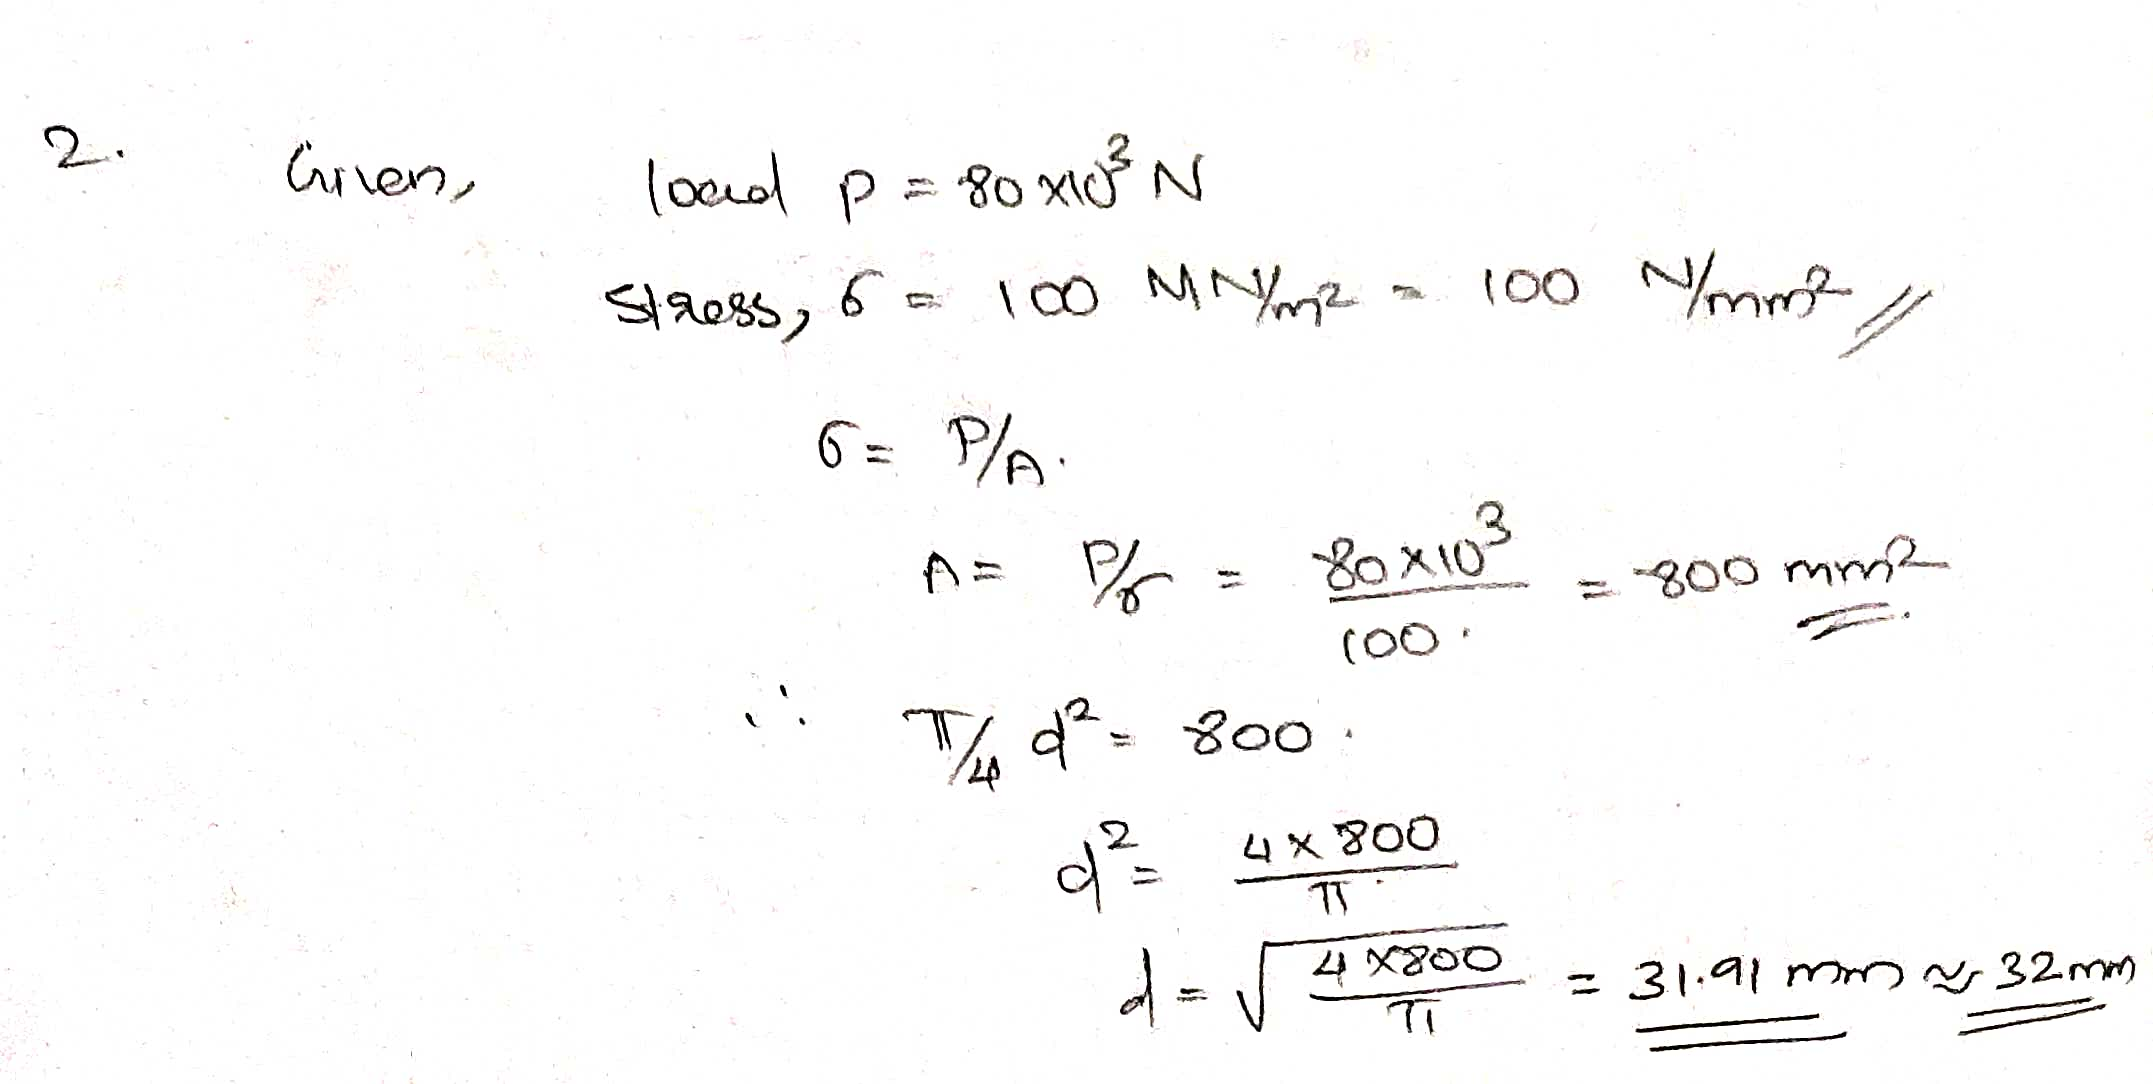 2. Given, load P = 80×10³ N
Stress, σ = 100 MN/m² = 100 N/mm² //
σ = P/A.
A = P/σ = 80×10³/100. = 800 mm²
∴ π/4 d² = 800.
d² = 4×800/π.
d = √(4×800/π) = 31.91 mm ≈ 32mm